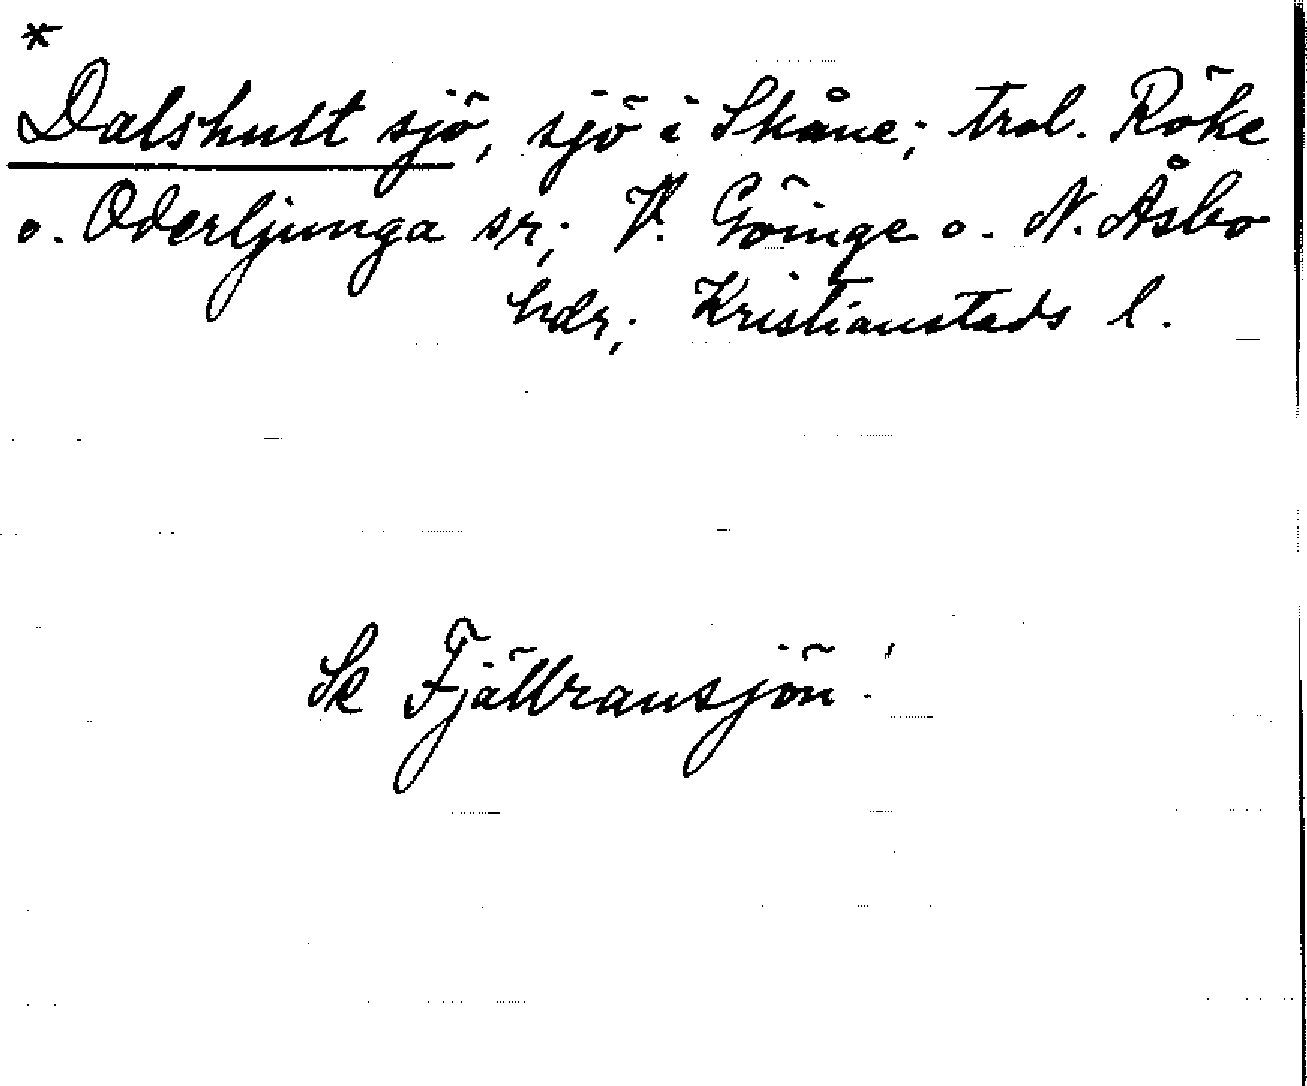 *
Dalshult sjö, sjö i Skåne; trol. Röke
o. Oderljunga sr; V. Göinge o. N. Åsbo
hdr; Kristianstads l.
Se Fjällransjön!